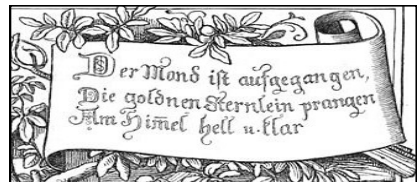 Der Mond ist aufgegangen,
Die goldnen Sternlein prangen
Am Him̄el hell u. klar